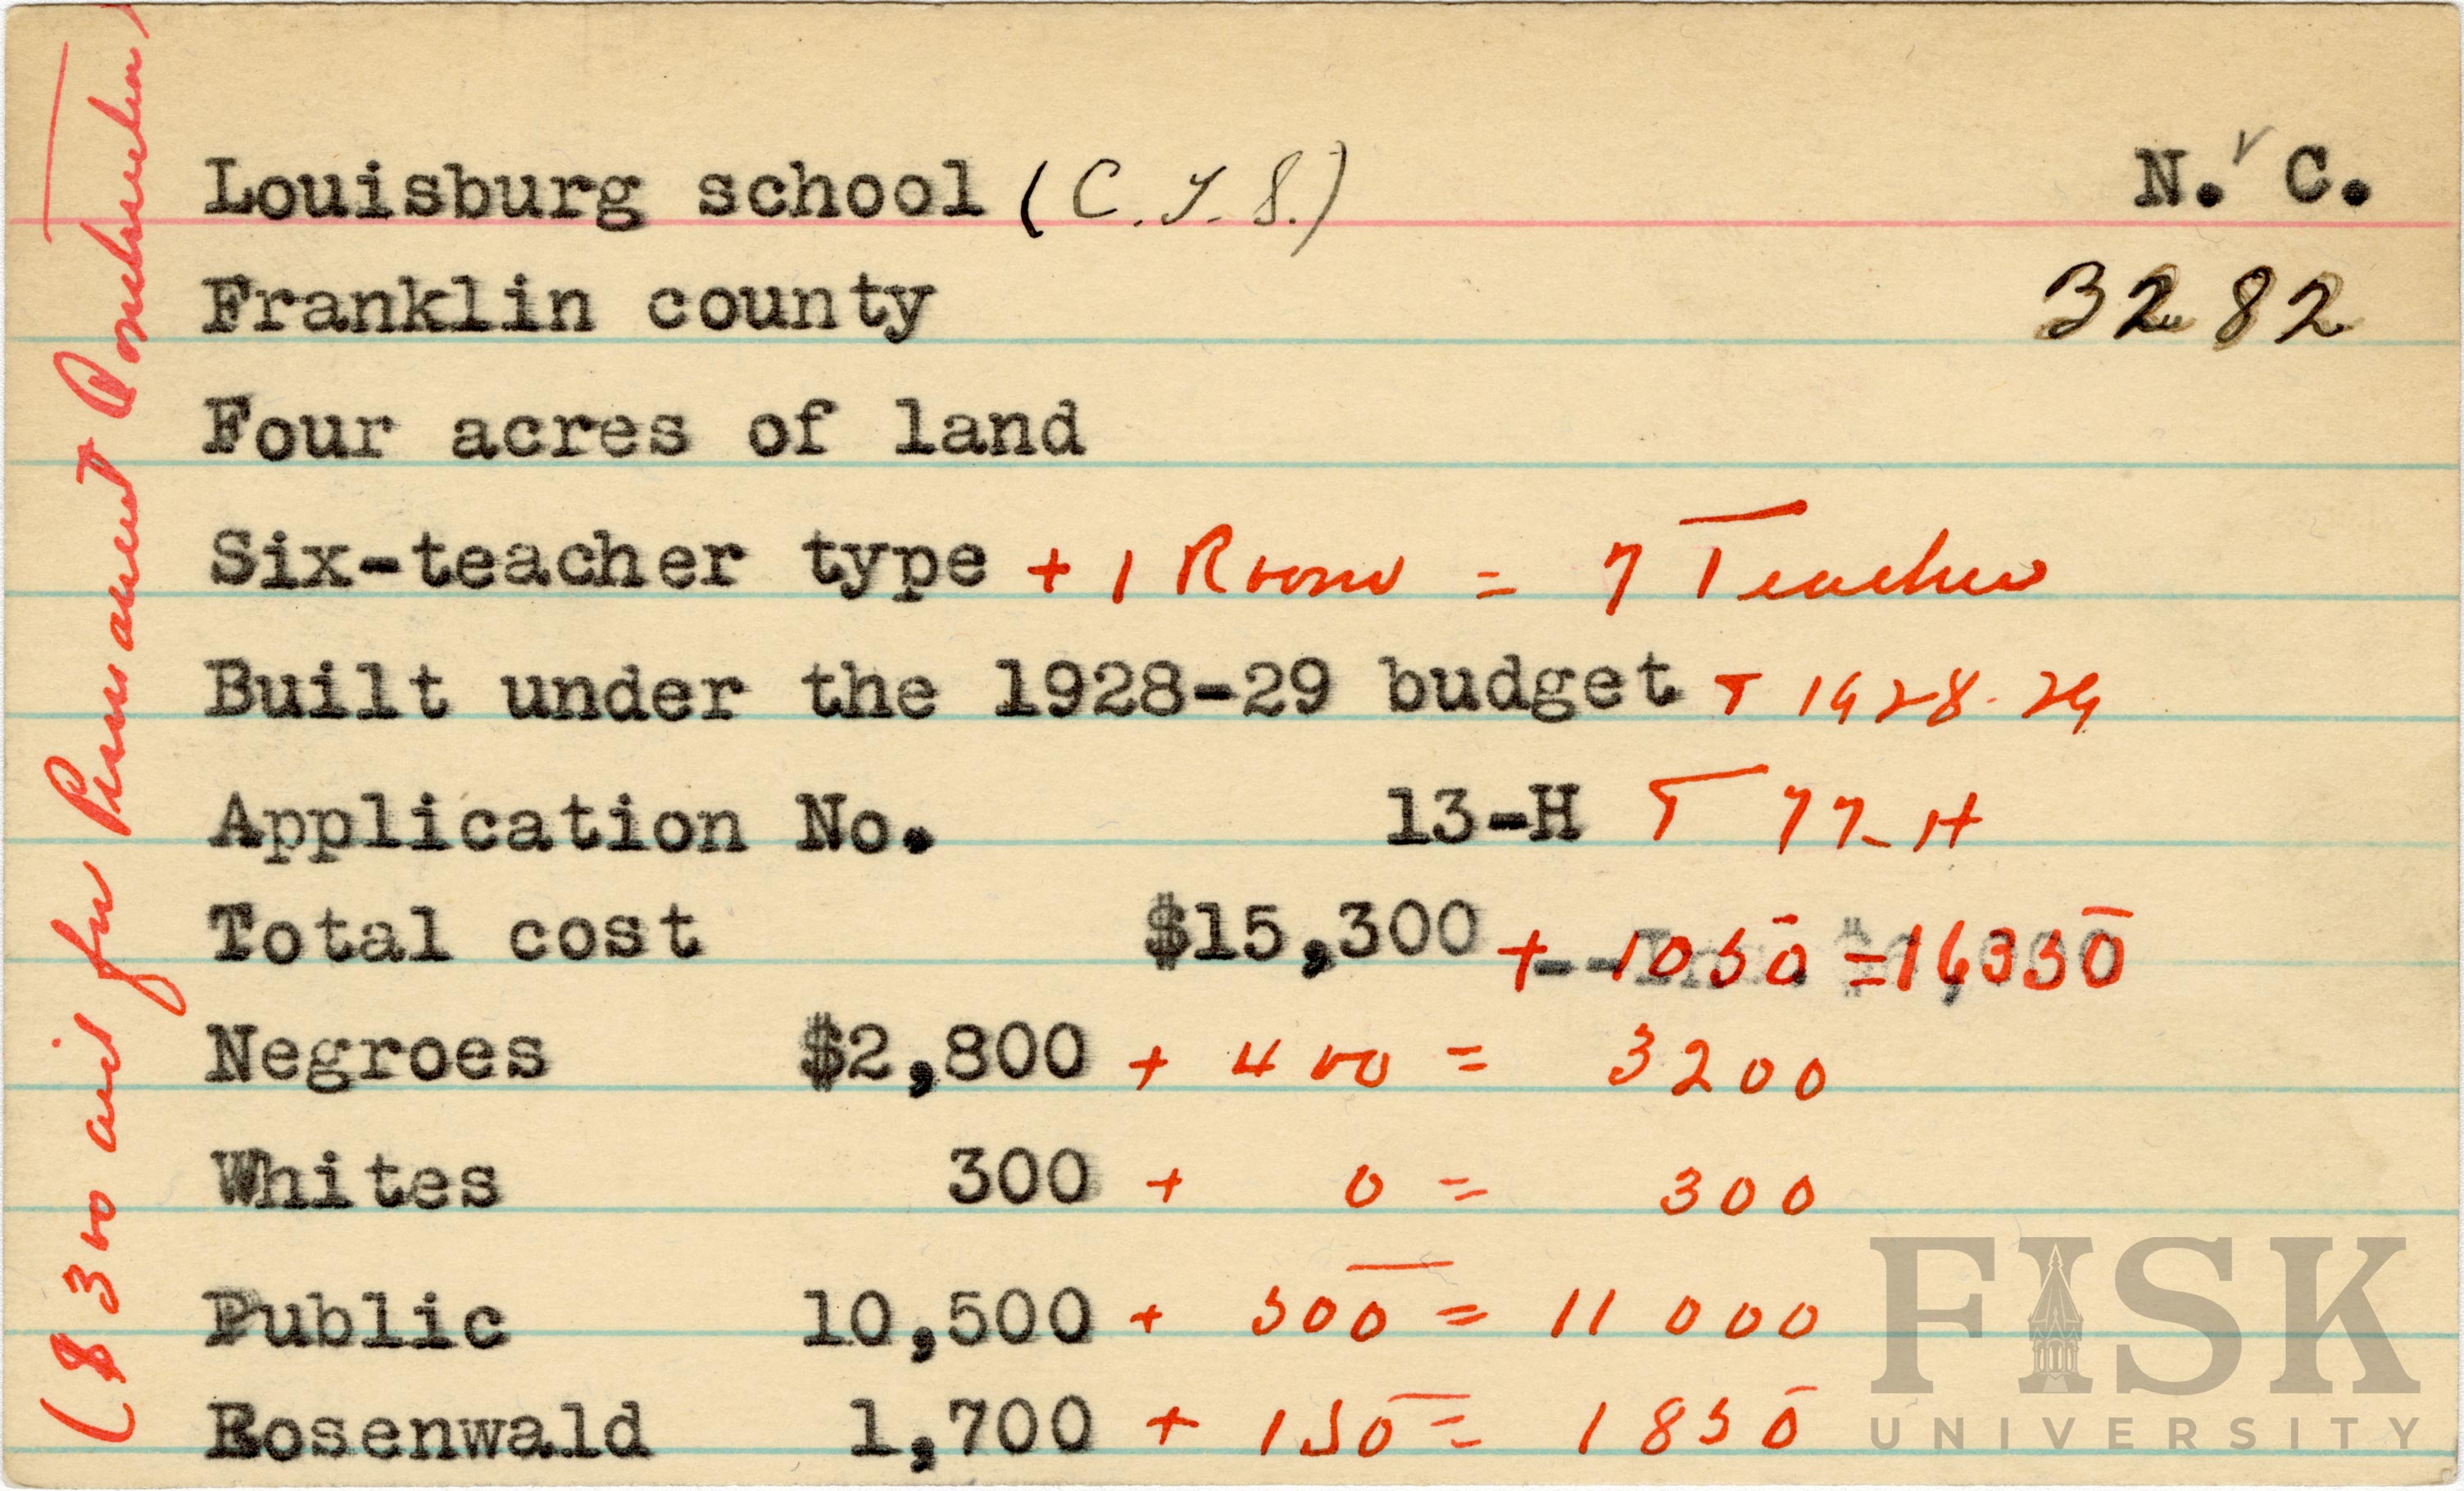 Louisburg school (C.T.S.) N. C.
Franklin county 3282
Four acres of land
Six-teacher type + 1 Room = 7 Teacher
Built under the 1928-29 budget + 1928-29
Application No. 13-H + 77-H
Total cost $15,300 + 1050 = 16350
Negroes $2,800 + 400 = 3200
Whites 300 + 0 = 300
Public 10,500 + 500 = 11 000
Rosenwald 1,700 + 150 = 1850
($300 aid for Permanent Construction)
FISK
UNIVERSITY